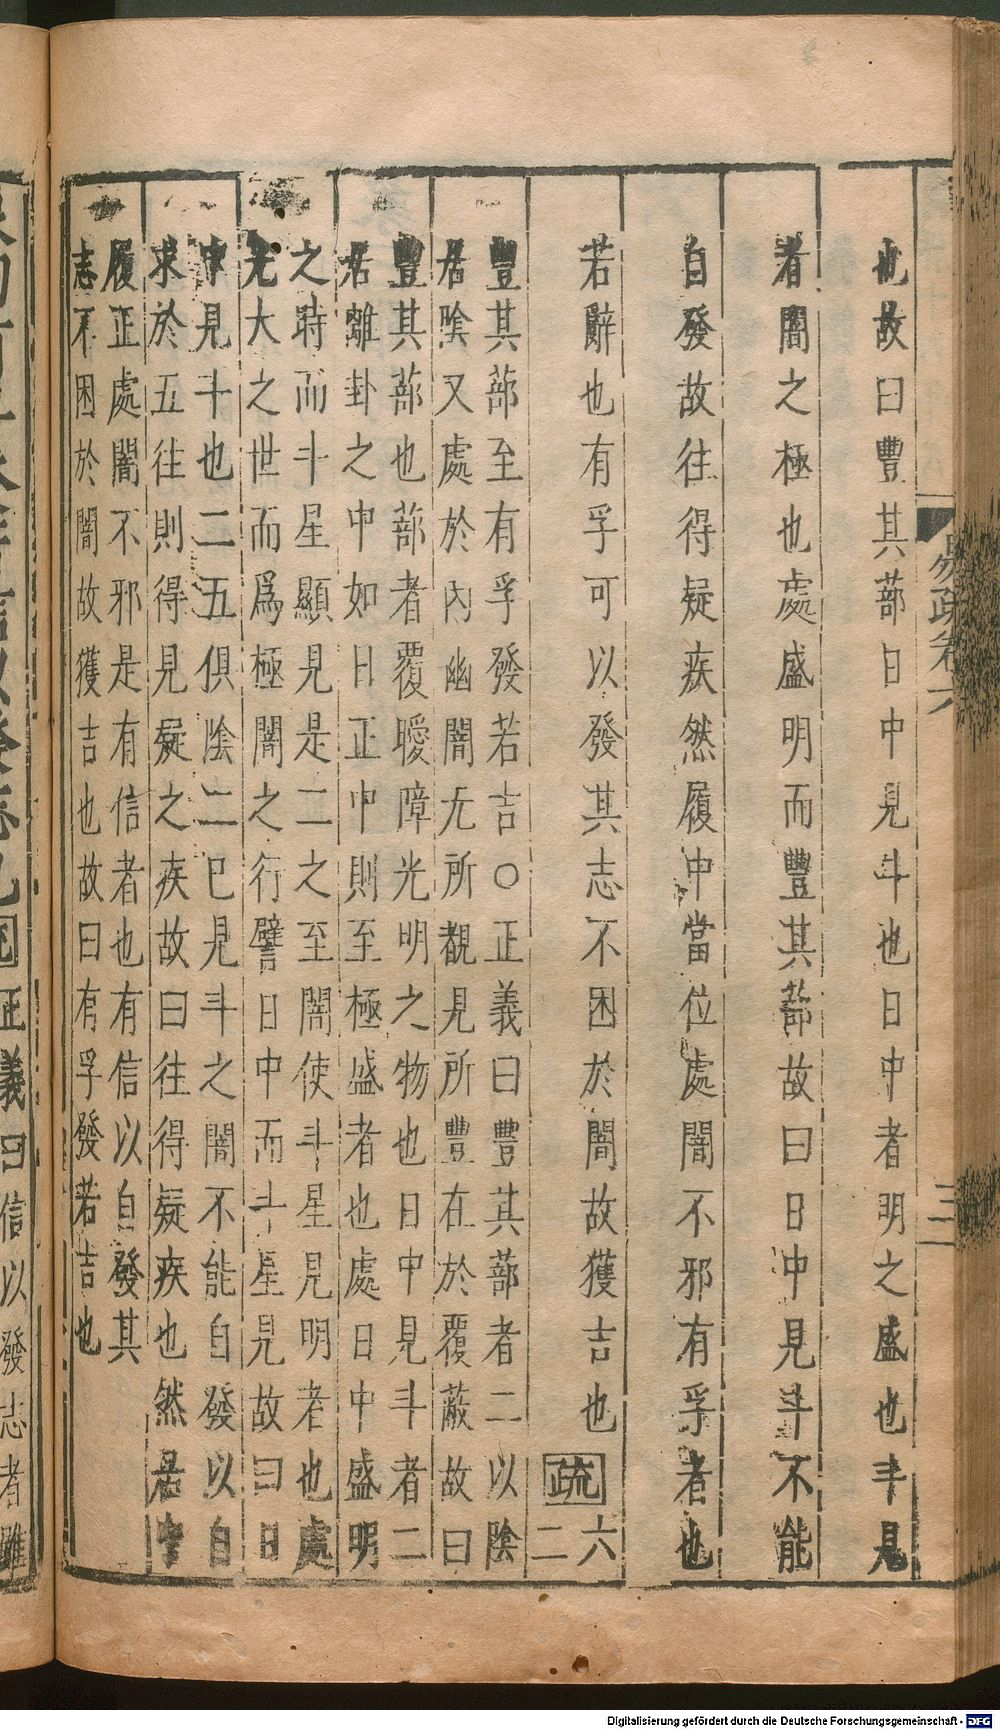 易疏卷六
也故曰豐其蔀日中見斗也日中者明之盛也斗見
者闇之極也處盛明而豐其蔀故曰日中見斗不能
自發故往得疑疾然履中當位處闇不邪有孚者也
若辭也有孚可以發其志不困於闇故獲吉也疏六
二
豐其蔀至有孚發若吉○正義曰豐其蔀者二以陰
居陰又處於內幽闇无所覩見所豐在於覆蔽故曰
豐其蔀也蔀者覆曖障光明之物也日中見斗者二
居離卦之中如日正中則至極盛者也處日中盛明
之時而斗星顯見是二之至闇使斗星見明者也處
光大之世而爲極闇之行譬日中而斗星見故曰日
中見斗也二五俱陰二已見斗之闇不能自發以自
求於五往則得見疑之疾故曰往得疑疾也然居中
履正處闇不邪是有信者也有信以自發其
志不困於闇故獲吉也故曰有孚發若吉也
正義曰信以發志者雖
Digitalisierung gefördert durch die Deutsche Forschungsgemeinschaft - DFG